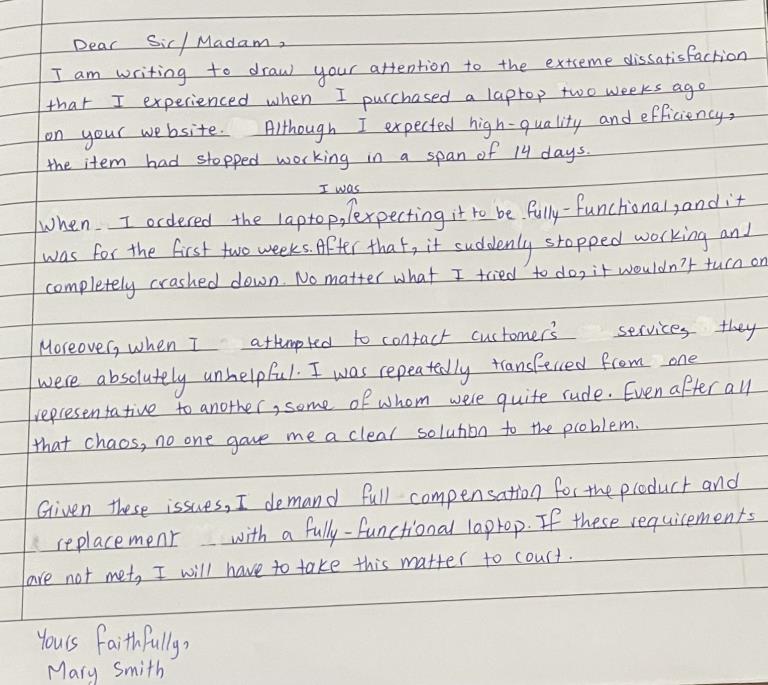 Dear Sir/Madam,
I am writing to draw your attention to the extreme dissatisfaction
that I experienced when I purchased a laptop two weeks ago
on your website. Although I expected high-quality and efficiency,
the item had stopped working in a span of 14 days.
I was
When I ordered the laptop, expecting it to be fully-functional, and it
was for the first two weeks. After that, it suddenly stopped working and
completely crashed down. No matter what I tried to do, it wouldn't turn on
Moreover, when I attempted to contact customer's services, they
were absolutely unhelpful. I was repeatedly transferred from one
representative to another, some of whom were quite rude. Even after all
that chaos, no one gave me a clear solution to the problem.
Given these issues, I demand full compensation for the product and
replacement with a fully-functional laptop. If these requirements
are not met, I will have to take this matter to court.
Yours faithfully,
Mary Smith